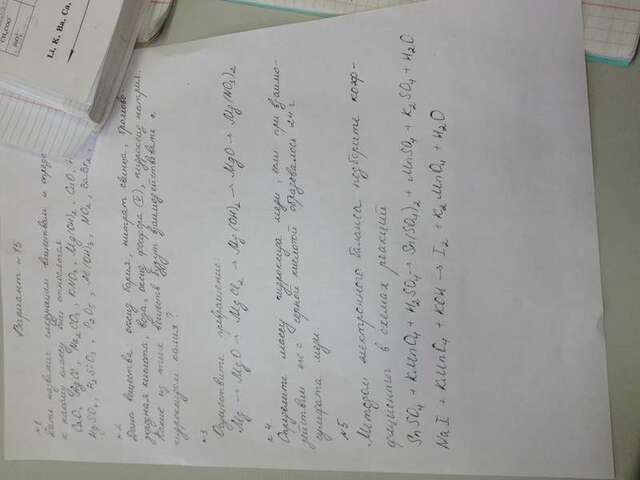 Вариант №15
№1
Дать названия следующим веществам и опре
к какому классу они относятся
CaO, HgCl, Na2CO3, KNO3, Mg(OH)2, CaO,
H2SO4, H2SiO3, P2O5, Al(OH)3, NO2, CaBr2
№2
Даны вещества: оксид бария, нитрат свинца, бромово-
дородная кислота, вода, оксид фосфора (V), гидроксид натрия.
Какие из этих веществ будут взаимодействовать с
гидроксидом калия?
№3
Осуществите превращение:
Mg → MgO → MgCl2 → Mg(OH)2 → MgO → Mg(NO3)2
№4
Определите массу гидроксида меди, если при взаимо-
действии его с серной кислотой образовалось 24 г
сульфата меди.
№5
Методом электронного баланса подберите коэф-
фициенты в схемах реакций
SnSO4 + KMnO4 + H2SO4 → Sn(SO4)2 + MnSO4 + K2SO4 + H2O
NaI + KMnO4 + KOH → I2 + K2MnO4 + H2O
Li, K, Ba, Ca,